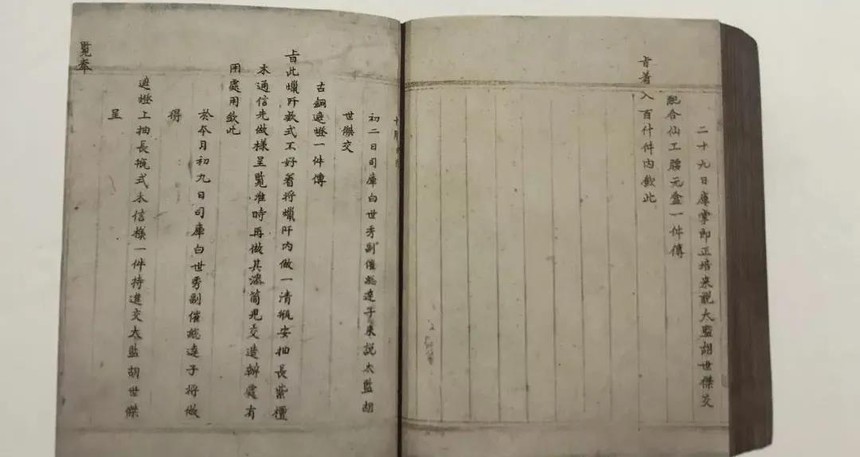 二十九日庫掌郎正培來說太監胡世傑交
配合仙工腰元盒一件傳
旨着入百什件內欽此
初二日司庫白世秀副催總達子來說太監胡
世傑交
古銅遮燈一件傳
旨此蠟阡款式不好着將蠟阡內做一清瓶安抽長紫檀
木通信先做樣呈覽准時再做其交造辦處有
用處用欽此
於今月初九日司庫白世秀副催總達子將做
得
遮燈上抽長式木信樣一件持進交太監胡世傑
呈
覽奉